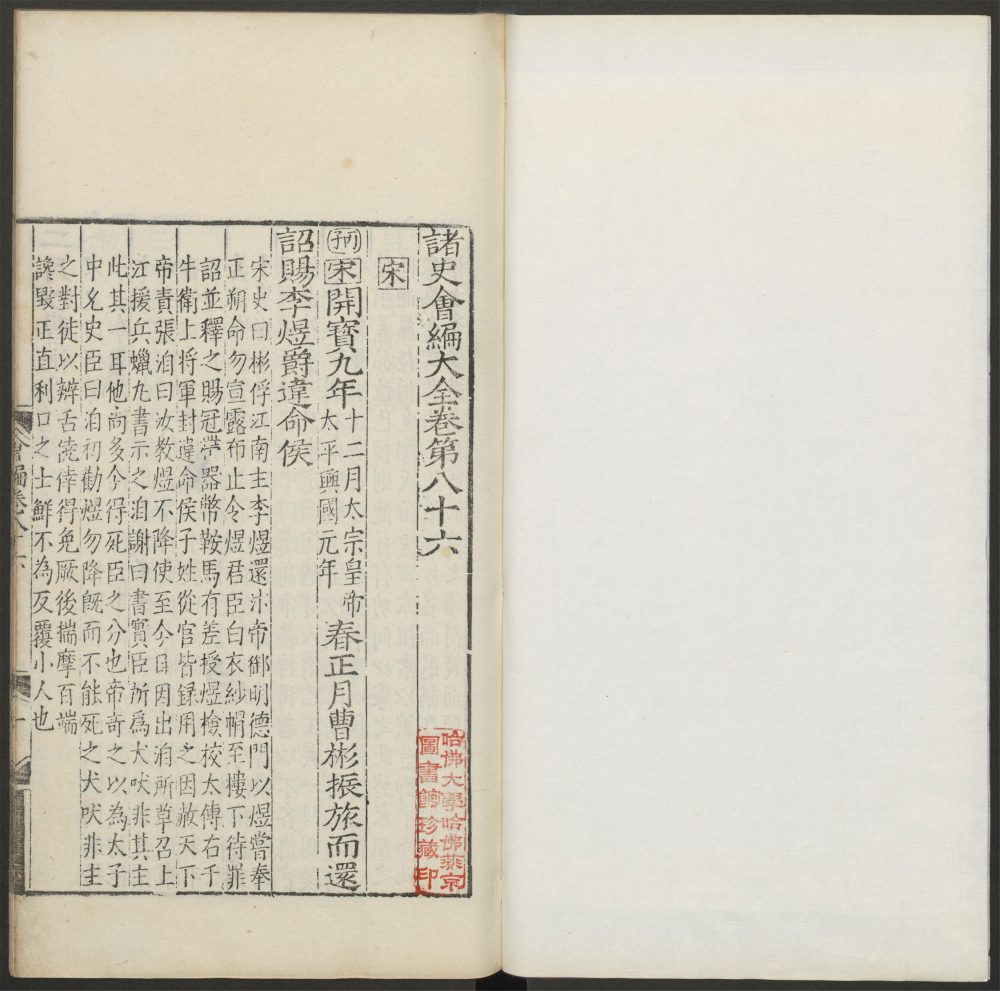 諸史會編大全卷第八十六
宋
丙子宋開寶九年十二月太宗皇帝太平興國元年春正月曹彬振旅而還
詔賜李煜爵違命侯
宋史曰彬俘江南主李煜還汴帝御明德門以煜嘗奉
正朔命勿宣露布止令煜君臣白衣紗帽至樓下待罪
詔並釋之賜冠帶器幣鞍馬有差授煜檢校太傅右千
牛衛上将軍封違命侯子姓從官皆録用之因赦天下
帝責張洎曰汝教煜不降使至今日因出洎所草召上
江援兵蠟丸書示之洎謝曰書實臣所為犬吠非其主
此其一耳他尚多今得死臣之分也帝奇之以為太子
中允史臣曰洎初勸煜勿降既而不能死之犬吠非主
之對徒以辨舌僥倖得免厥後揣摩百端
讒毀正直利口之士鮮不為反覆小人也
會編卷八十六
一
哈佛大學哈佛燕京
圖書館珍藏印